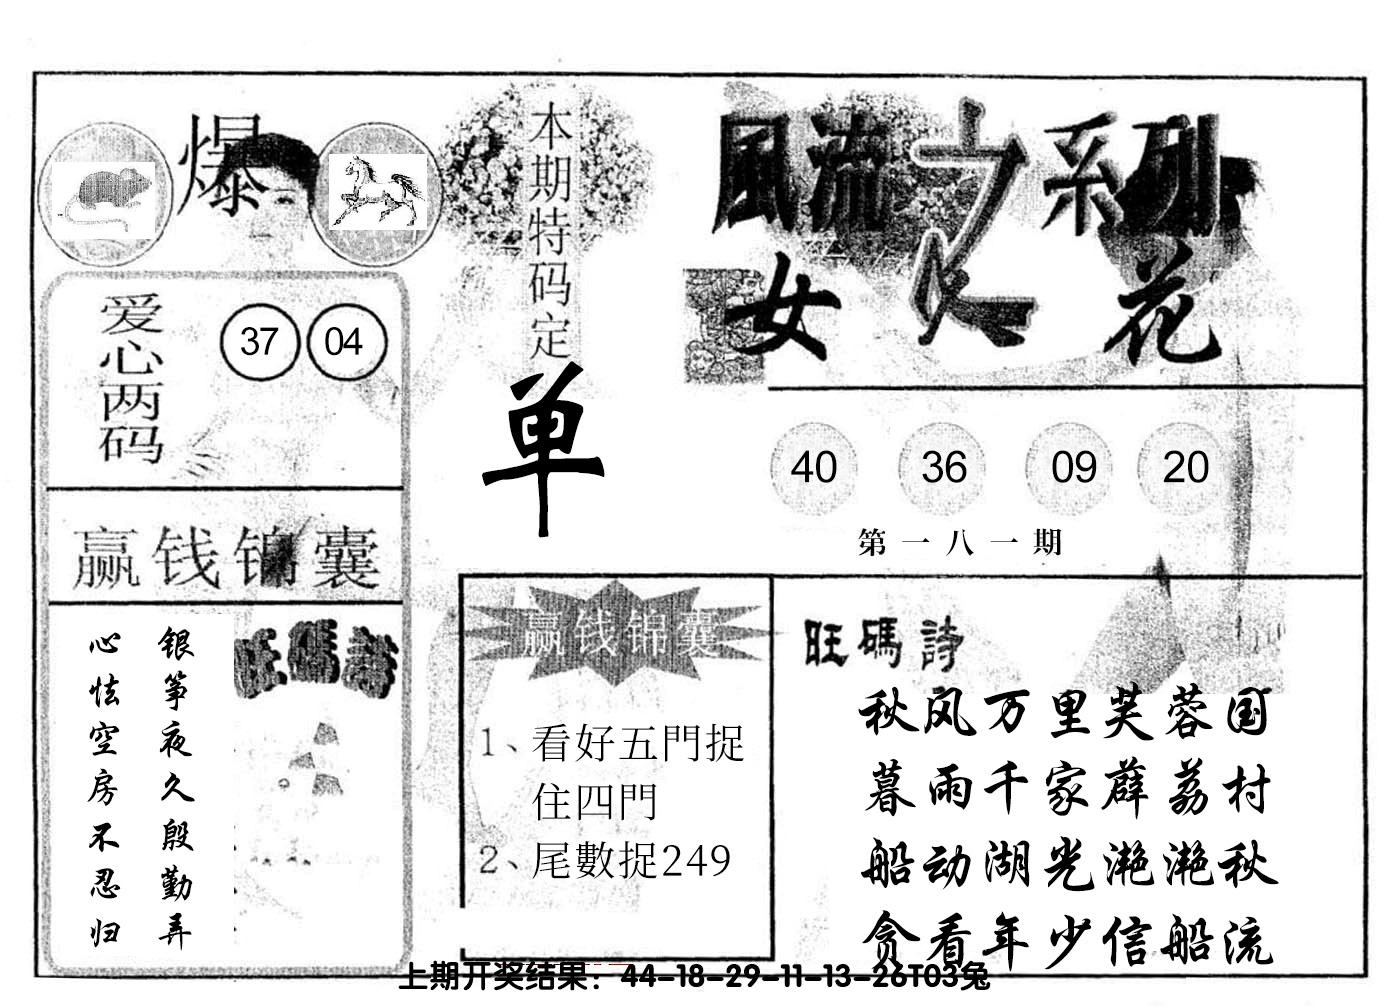 爆
本期特码定
单
風流之系列
女人花
爱心两码
37 04
40 36 09 20
第一八一期
赢钱锦囊
银筝夜久殷勤弄
心怯空房不忍归
旺碼詩
赢钱锦囊
1、看好五門捉
住四門
2、尾數捉249
旺碼詩
秋风万里芙蓉国
暮雨千家薜荔村
船动湖光滟滟秋
贪看年少信船流
上期开奖结果：44-18-29-11-13-26T03兔